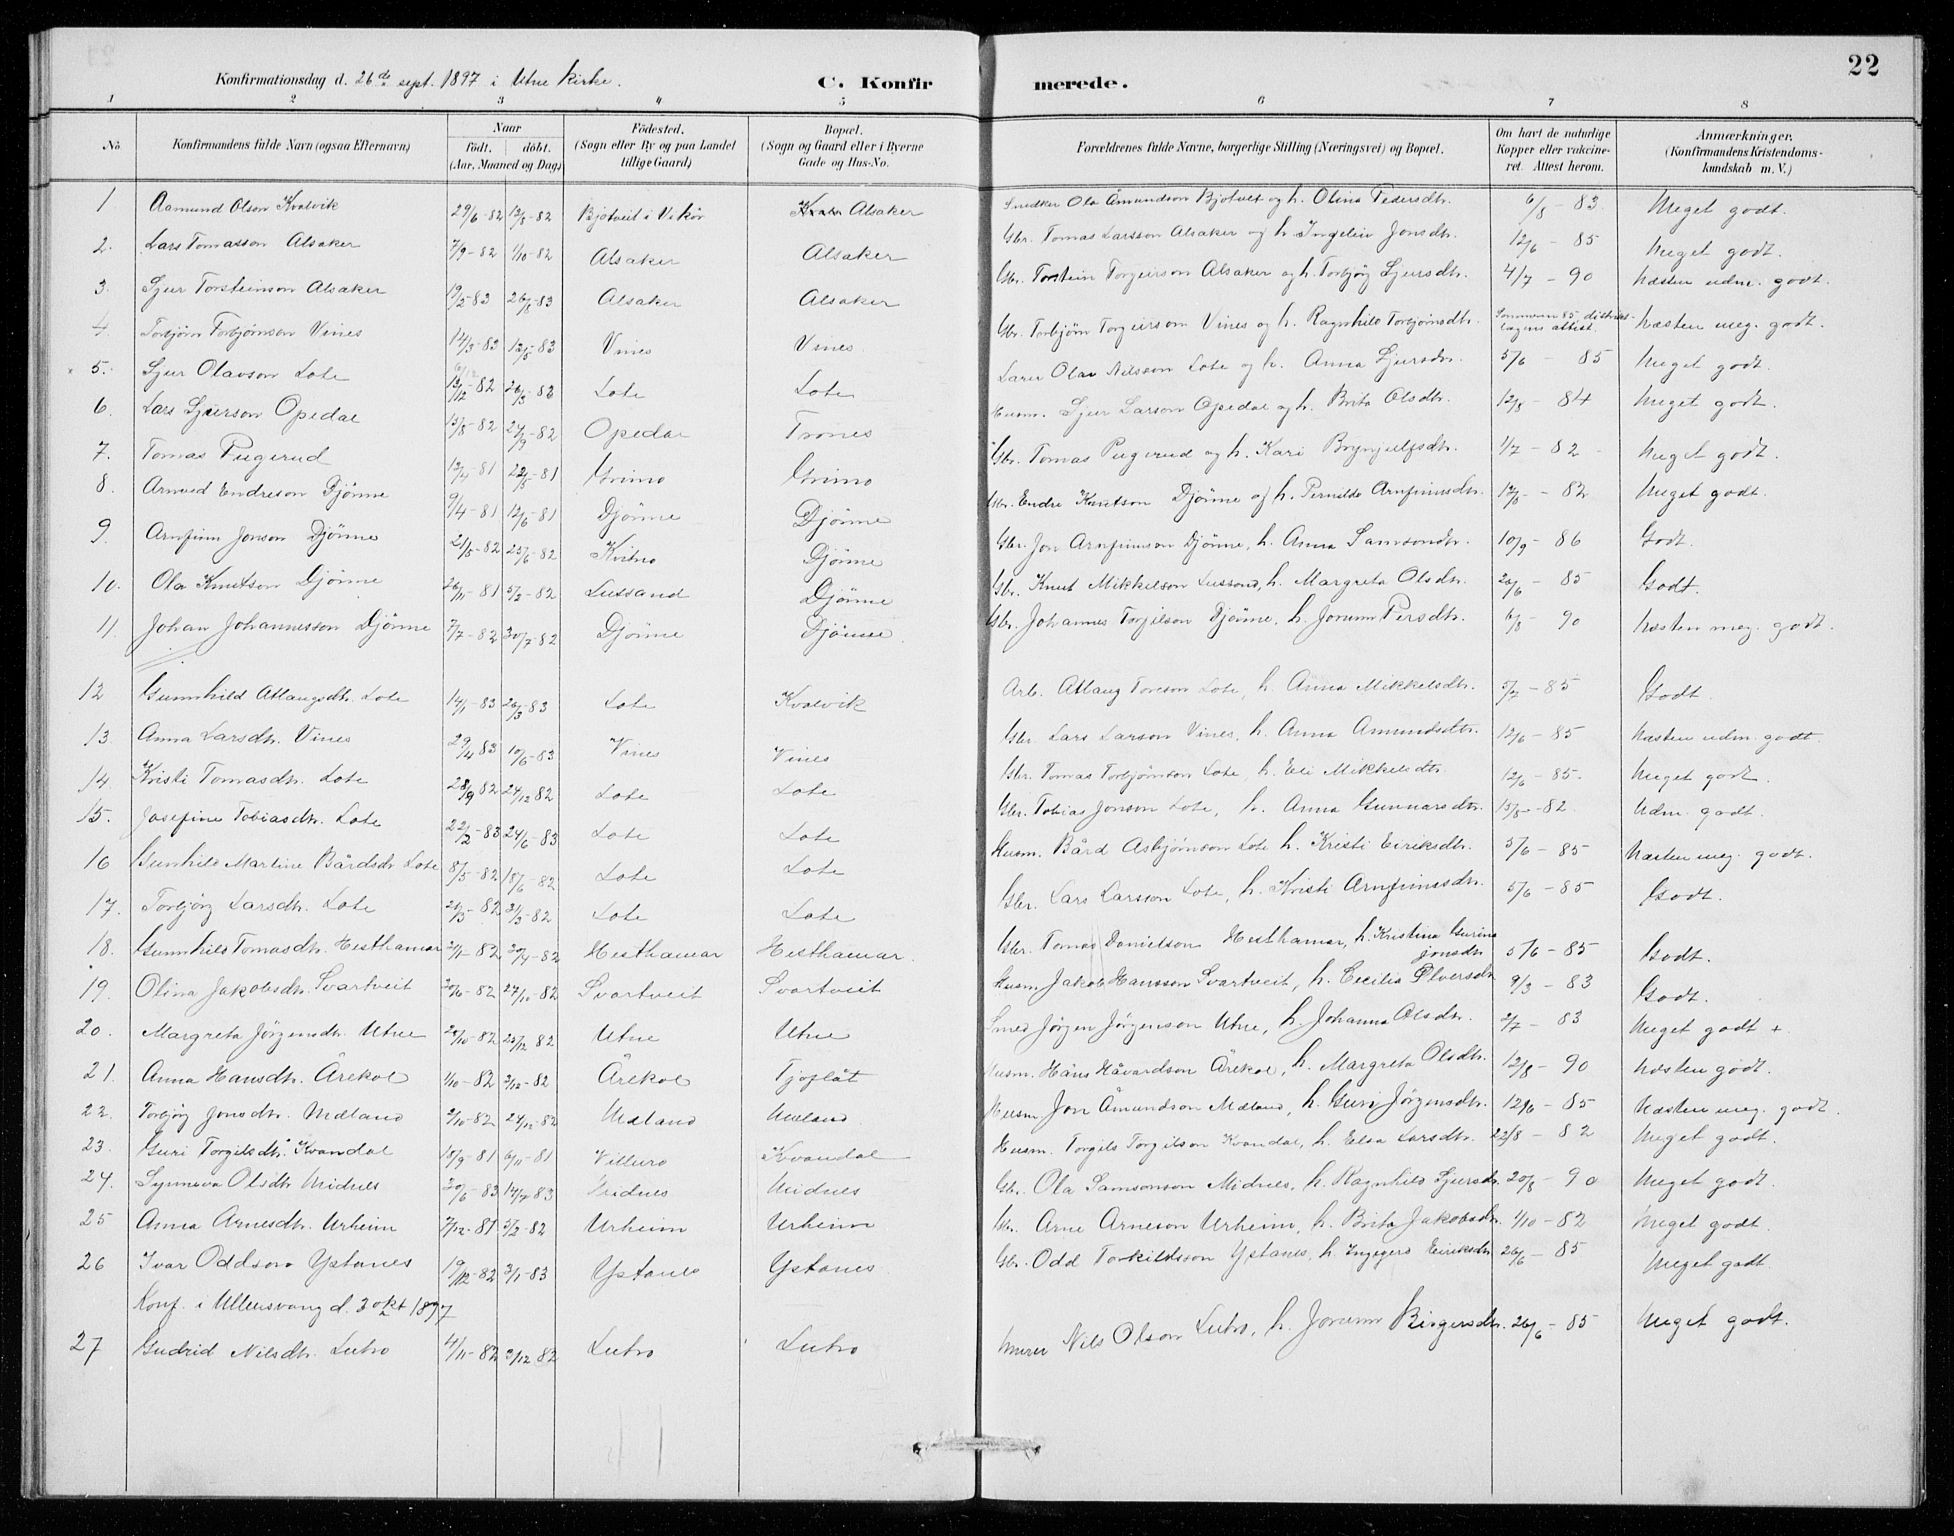 22
Konfirmationsdag d. 26de sept. 1897 i Utne kirke. C. Konfirmerede.
1 2 3 4 5 6 7 8
No. Konfirmandens fulde Navn (ogsaa Efternavn) Naar født. døbt. (Aar, Maaned og Dag) Fødested. (Sogn eller By og paa Landet tillige Gaard) Bopæl. (Sogn og Gaard eller i Byerne Gade og Hus-No. Forældrenes fulde Navne, borgerlige Stilling (Næringsvei) og Bopæl. Om havt de naturlige Kopper eller vakcineret. Attest herom. Anmærkninger. (Konfirmandens Kristendomskundskab m. V.)
1 Aamund Olson Kvalvik 29/6-82 13/8-82 Bjotveit i Vikör Alsaker Snedker Ola Åmundson Bjotveit og h. Olina Pedersdtr. 6/8 - 83. Meget godt.
2. Lars Tomasson Alsaker 7/9-82 1/10-82 Alsaker Alsaker Gbr. Tomas Larsson Alsaker og h. Ingeleiv Jonsdtr. 12/6 - 85 Meget godt.
3. Sjur Torsteinson Alsaker 19/5-83 26/8-83 Alsaker Alsaker Gbr. Torstein Torgeirson Alsaker og h. Torbjög Sjursdtr. 4/7 - 90 Næsten udm. godt.
4. Torbjörn Torbjörnson Vines 14/3-83 12/5-83 Vines Vines Gbr. Torbjörn Torgeirson Vines og h. Ragnhild Torbjörnsdtr. Sommeren 85 distriktslægens attest. Næsten meg. godt.
5. Sjur Olavson Lote 13/12-82 26/3-83 Lote Lote Lærer Olav Nilsson Lote og h. Anna Sjursdtr. 5/6 - 85 Meget godt.
6. Lars Sjurson Opedal 13/8-82 24/9-82 Opedal Trones Husm. Sjur Larson Opedal og h. Brita Olsdtr. 12/8 - 84 Meget godt.
7. Tomas Pugerud 13/4-81 22/5-81 Grimo Grimo Gbr. Tomas Pugerud og h. Kari Brynjulfsdtr. 1/7 - 82 Meget godt.
8. Arnved Endreson Djönne 9/4-81 12/6-81 Djönne Djönne Gbr. Endre Knutson Djönne og h. Pernilde Arnfinnsdtr. 13/8 - 82 Meget godt.
9. Arnfinn Jonson Djönne 21/5-82 25/6-82 Kvitno Djönne Gbr. Jon Arnfinnson Djönne, h. Anna Samsondtr. 10/9 - 86 Godt.
10. Ola Knutson Djönne 26/11-81 5/2-82 Lussand Djönne Gbr. Knut Mikkelson Lussand, h. Margreta Olsdtr. 26/6 - 85 Godt.
11. Johan Johannesson Djönne 7/7-82 30/7-82 Djönne Djönne. Gbr. Johannes Torgilson Djönne, h. Jorunn Persdtr. 6/8 90 Næsten meg. godt.
12 Gunnhild Atlaugsdtr. Lote 14/1-83 26/3-83 Lote Kvalvik Arb. Atlaug Toreson Lote, h. Anna Mikkelsdtr. 5/7 - 85 Godt.
13. Anna Larsdtr. Vines 29/4-83 10/6-83 Vines Vines Gbr. Lars Larson Vines, h. Anna Amundsdtr. 12/6 - 85 Næsten udm. godt.
14. Kristi Tomasdtr. Lote 28/9 82 24/12 82 Lote Lote Gbr. Tomas Torbjörnson Lote, h. Eli Mikkelsdtr. 12/6 - 85. Meget godt.
15. Josefine Tobiasdtr. Lote 22/2-83 24/6-83 Lote Lote Gbr. Tobias Jonson Lote, h. Anna Gunnarsdtr. 13/8 - 82 Udm. godt.
16 Gunhild Martine Bårdsdtr Lote 8/5-82 18/6-82 Lote Lote Husm. Bård Asbjörnson Lote h. Kristi Eiriksdtr. 5/6 - 85 Næsten meg. godt.
17. Torbjög Larsdtr. Lote 26/3-82 Lote Lote Gbr. Lars Larsson Lote, h. Kristi Arnfinnsdtr. 5/6 - 85 Godt.
18. Gunnhild Tomasdtr. Hesthamar 2/1-82 20/4-82 Hesthamar Hesthamar. Gbr. Tomas Danielson Hesthamar, h. Kristina Gurina Jonsdtr 5/6 - 85 Godt.
19. Olina Jakobsdtr. Svartveit 20/6-82 27/10-82 Svartveit Svartveit Husm. Jakob Hansson Svartveit, h. Cecilia Ølversdtr 9/3 - 83 Godt.
20. Margreta Jörgensdtr. Utne 20/10-82 25/12 82 Utne Utne Smed Jörgen Jörgenson Utne, h. Johanna Olsdtr. 2/7 - 83 Meget godt +
21. Anna Hansdtr. Ârekol 1/10-82 3/12-82 Ârekol Tjoflåt Husm. Hans Håvardson Ârekol, h. Margreta Olsdtr. 12/8 - 90 Næsten godt.
22. Torbjög Jonsdtr. Mæland 2/10-82 24/12-82 Mæland Mæland Husm. Jon Åmundson Mæland, h. Guri Jörgensdtr. 12/6 - 85 Næsten meg. godt.
23. Guri Torgilsdtr. Kvandal 18/9-81 6/11-81 Villuro Kvandal Husm. Torgils Torgilson Kvandal, h. Elsa Larsdtr. 22/8 - 82 Meget godt.
24. Synneva Olsdtr Midnes 20/5-83 Midnes Midnes Gbr. Ola Samsonson Midnes, h. Ragnhild Sjursdtr. 20/8 - 90 Meget godt.
25 Anna Arnesdtr. Urheim 7/12-81 5/2-82 Urheim Urheim Gbr. Arne Arneson Urheim, h. Brita Jakobsdtr. 1/10 - 82 Meget godt.
26 Ivar Oddson Ystanes 19/12-82 3/1-83 Ystanes Ystanes Gbr. Odd Torkildsson Ystanes, h. Ingegerd Eiriksdtr 26/6 - 85 Meget godt.
Konf. i Ullensvang d. 3 okt 1897
27 Gudrid Nilsdtr. Lutro 4/11-82 3/12 82 Lutro Lutro Murer Nils Olson Lutro, h. Jorunn Birgersdtr. 26/6 - 85 Meget godt.